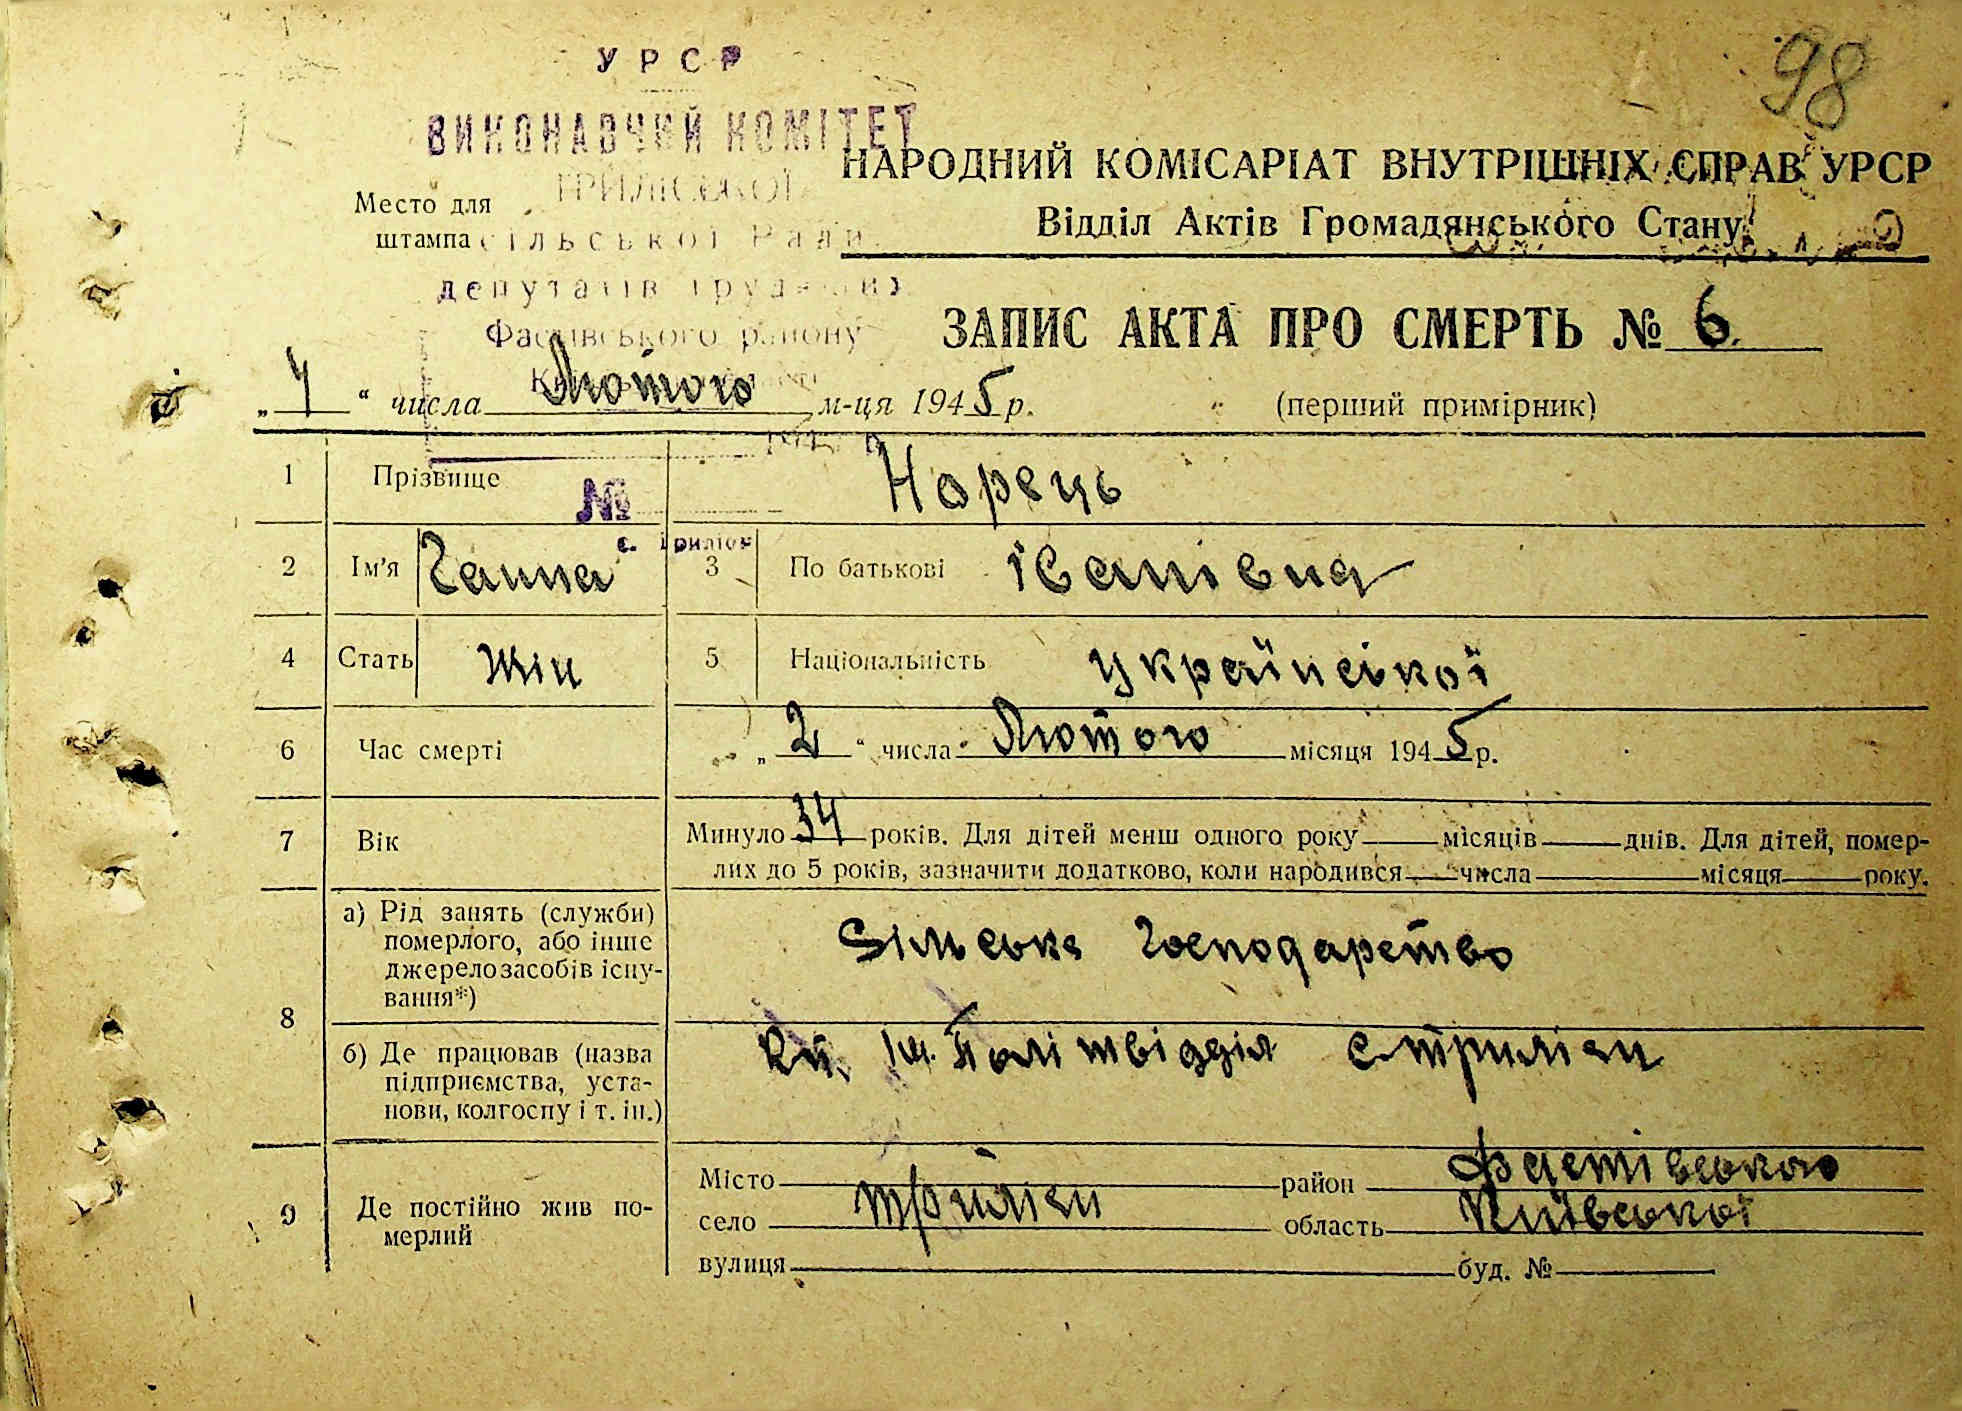 98
УРСР
ВИКОНАВЧИЙ КОМІТЕТ
НАРОДНИЙ КОМІСАРІАТ ВНУТРІШНІХ СПРАВ УРСР
Место для
штампа
ТРИЛІСЬКОЇ
сільської Ради
Відділ Актів Громадянського Стану
депутатів трудящих
Фастівського району
ЗАПИС АКТА ПРО СМЕРТЬ № 6.
„ 4 “ числа Лютого м-ця 1945 р. (перший примірник)
1 Прізвище Норець
№
с. Триліси
2 Ім’я Ганна 3 По батькові Іванівна
4 Стать жін 5 Національність Української
6 Час смерті „ 2 “ числа Лютого місяця 1945 р.
7 Вік Минуло 34 років. Для дітей менш одного року місяців днів. Для дітей, помер-
лих до 5 років, зазначити додатково, коли народився числа місяця року.
8 а) Рід занять (служби)
померлого, або інше
джерело засобів існу-
вання*)
Сільське господарство
б) Де працював (назва
підприємства, уста-
нови, колгоспу і т. ін.)
ім. Політвідділ с Триліси
9 Де постійно жив по-
мерлий
Місто район Фастівського
село Триліси область Київської
вулиця буд. №